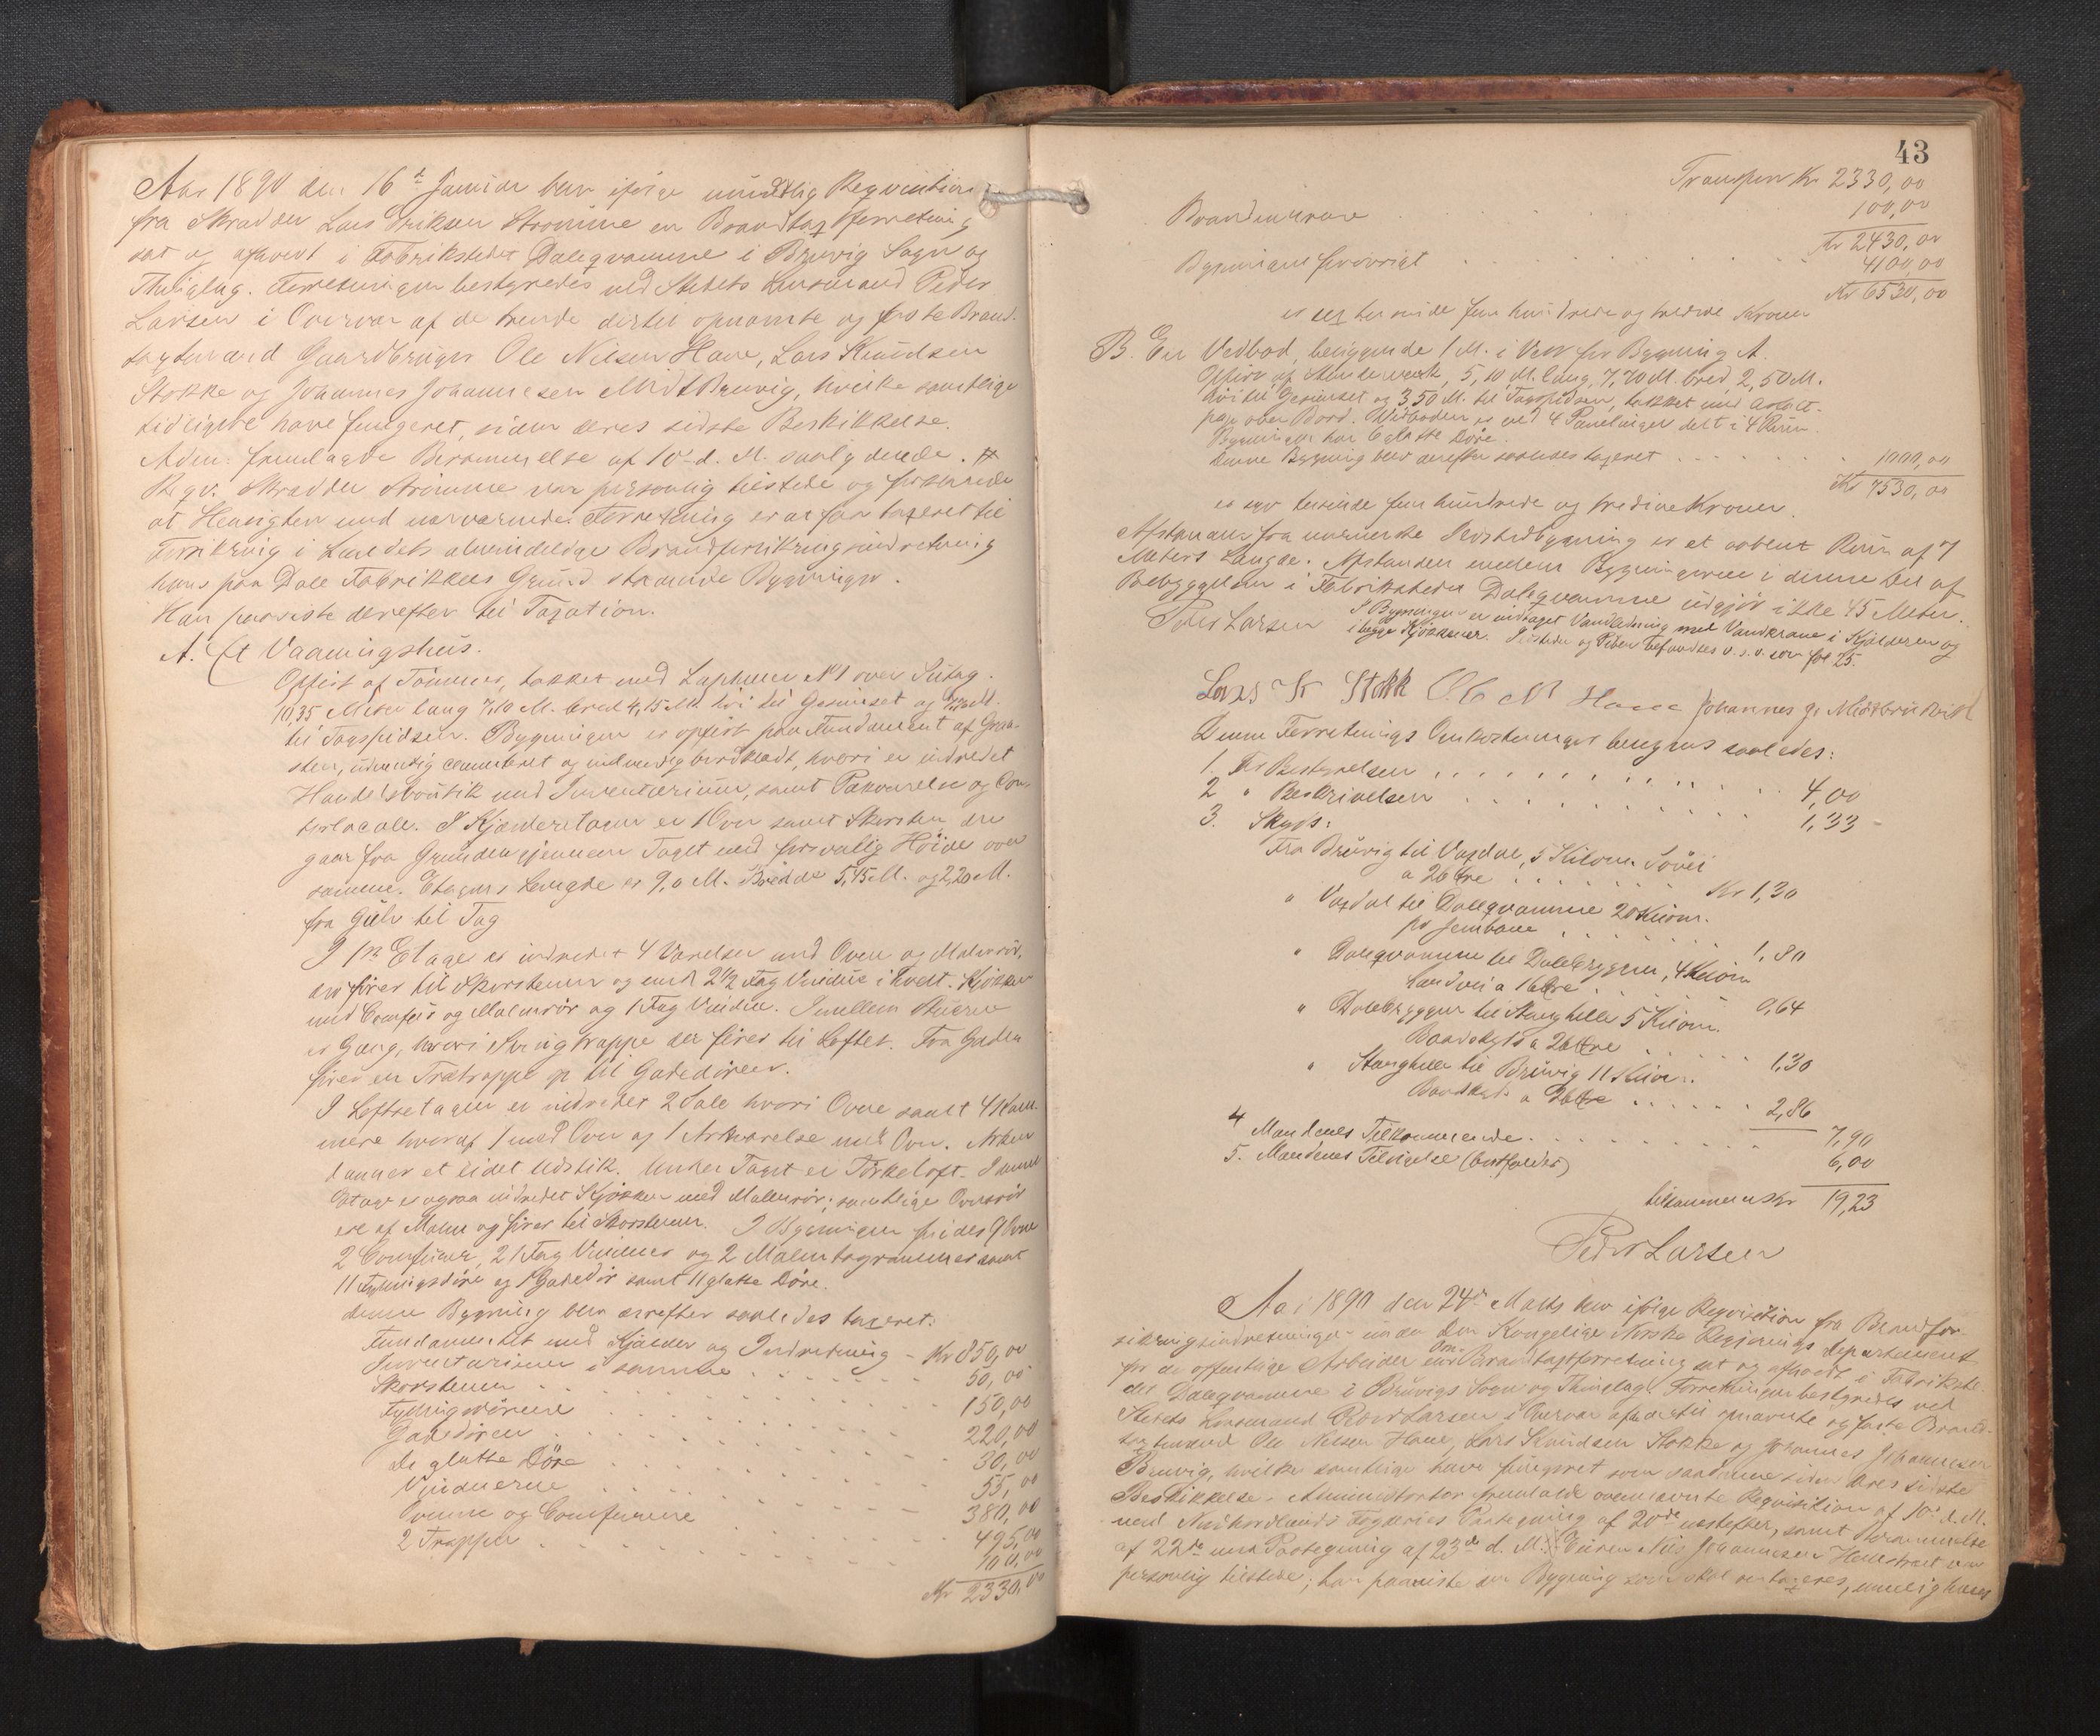 Aar 1890 den 16de Januar blev ifølge mundtlig Reqvisition
fra Skrædder Lars Eriksen Strømme en Brandtaxtforretning
sat og afholdt i Fabrikstedet Daleqvamme i Bruvig Sogn og
Thinglag. Forretningen bestyredes ved Stedets Lensmand Peder
Larsen i Overvær af de trende dertil opnævnte og faste Brand-
taxtmænd Gaardbruger Ole Nilsen Hane, Lars Knudsen
Stokke og Johannes Johannesen MidtBruvig, hvilke samtlige
tidligere have fungeret, siden deres sidste Beskikkelse.
Adm. fremlagde Berammelse af 10de d. M. saalydende. #
Reqv. Skrædder Strømme var personlig tilstede og forklarede
at Hensigten med nærværende Forretning er at faa taxeret til
Forsikring i Landets almindelige Brandforsikringsindretning
hans paa Dale Fabrikkes Grund staaende Bygninger.
Han paaviste derefter til Taxation.
A. Et Vaaningshus.
Opført af Tømmer, tækket med Taphuer N1 over Sutag.
10,35 Meter lang 7,10 M. bred 4,15 M. høi til Gesimset og M.
til Tagspidsen. Bygningen er opført paa Fundament af Graa-
sten, udvendig cementeret og indvendig bordklædt, hvori er indredet
Handelsboutik med Inventarium, samt Pakværelse og Con-
torlocale. I Kjælderetagen er 1 Ovn samt Skorsten, der
gaar fra Grunden gjennem Taget med forsvarlig Høide over
samme. Etagens Længde er 9,0 M. Bredde 5,45 M. og 2,20 M.
fra Gulv til Tag
I 1ste Etage er indredet 4 Værelser med Ovne og Malmrør,
der fører til Skorstenen og med 2 1/2 Fag Vindue i hvert. Kjøkken
med Comfur og Malmrør og 1 Fag Vindue. Imellem Stuerne
er Gang, hvori Svingtrappe der fører til Loftet. Fra Gaden
fører en Trætrappe op til Gadedøren.
I Loftsetagen er indredet 2 Sale hvori Ovne samt 4 Kam-
mere hvoraf 1 med Ovn og 1 Arkværelse med Ovn. Arken
danner et lidet Udstik. Under Taget er Tørkeloft. I denne
Etage er ogsaa indredet Kjøkken med Malmrør; samtlige Ovnsrør
ere af Malm og fører til Skorstenen. I Bygningen findes 9 Ovne
2 Comfurer, 21 Fag Vinduer og 2 Malmtagrammer samt
11 Fyldingsdøre og 1 Gadedør samt 11 glatte Døre.
Denne Bygning blev derefter saaledes taxeret:
Fundamentet med Kjælder og Indredning - Kr 850,00
Inventarium i samme 50,00
Skorstenen 150,00
Fyldingsdørene 220,00
Gadedøren 30,00
De glatte Døre 55,00
Vinduerne 380,00
Ovnene og Comfurene 495,00
2 Trapper 100,00
Kr 2330,00
43
Transport Kr 2330,00
Brandmurene 100,00
Kr 2430,00
Bygningen forøvrigt 4100,00
Kr 6530,00
er sex tusinde fem hundrede og tredive Kroner
B. En Vedbod, beliggende 1 M. i Vest for Bygning A.
Opført af Stenderværk, 5,10 M. lang, 7,70 M. bred, 2,50 M.
høi til Gesimset og 3,50 M. til Tagspidsen, tækket med Asfalt-
pap over Bord. Udboden er ved 4 Panelinger delt i 4 Rum.
Bygningen har 6 glatte Døre.
Denne Bygning blev derefter saaledes taxeret 1000,00
Kr 7530,00
er syv tusinde fem hundrede og tredive Kroner.
Afstanden fra nærmeste Nabobygning er et aabent Rum af 7
Meters Længde. Afstanden mellem Bygningerne i denne Del af
Bebyggelsen i Fabrikstedet Daleqvamme udgjør ikke 45 Meter.
I Bygningen er indlaget Vandledning med Vandkrane i Kjælderen og
i begge Kjøkkener. Ildsteder og Piber befandtes v. s. v. som fol 25.
Peder Larsen
Lars K Stokk Ole N Hane Johannes J. Midtbruvik
Denne Forretnings Omkostninger beregnes saaledes:
1. For Bestyrelsen 4,00
2 " Beskrivelsen 1,33
3. Skyds:
Fra Bruvig til Vaxdal, 5 Kilom. Søvei
a 26 Øre Kr 1,30
" Vaxdal til Daleqvamme 20 Kilom.
pr Jernbane 1,80
" Daleqvamme til Dalebryggen, 4 Kilom
Landvei a 16 Øre 0,64
" Dalebryggen til Stanghelle 5 Kilom.
Baadskyds a 26 Øre 1,30
" Stanghelle til Bruvig 11 Kilom.
Baadskyds a 26 Øre 2,86
7,90
4 Mændenes Tilkommende 6,00
5. Mændenes Tilsigelse (bortfalder)
tilsammen Kr 19,23
Peder Larsen
Aar 1890 den 24de Marts blev ifølge Reqvisition fra Brandfor-
sikringsindretningen under den Kongelige Norske Regjerings Departement
for de offentlige Arbeider en Om-Brandtaxtforretning sat og afholdt i Fabrikste-
det Daleqvamme i Bruvigs Sogn og Thinglag. Forretningen bestyredes ved
Stedets Lensmand Peder Larsen i Overvær af de dertil opnævnte og faste Brand-
taxtmænd Ole Nilsen Hane, Lars Knudsen Stokke og Johannes Johannesen
Bruvig, hvilke samtlige have fungeret som saadanne siden deres sidste
Beskikkelse. Administrator fremlagde ovennævnte Reqvisition af 10de d. M.
med Nordhordlands Fogderies Paategning af 20de næstefter, samt Berammelse
af 22de med Paategning af 23de d. M. Eieren Nils Johannesen Helle var
personlig tilstede; han paaviste den Bygning som skal omtaxeres, nemlig hans